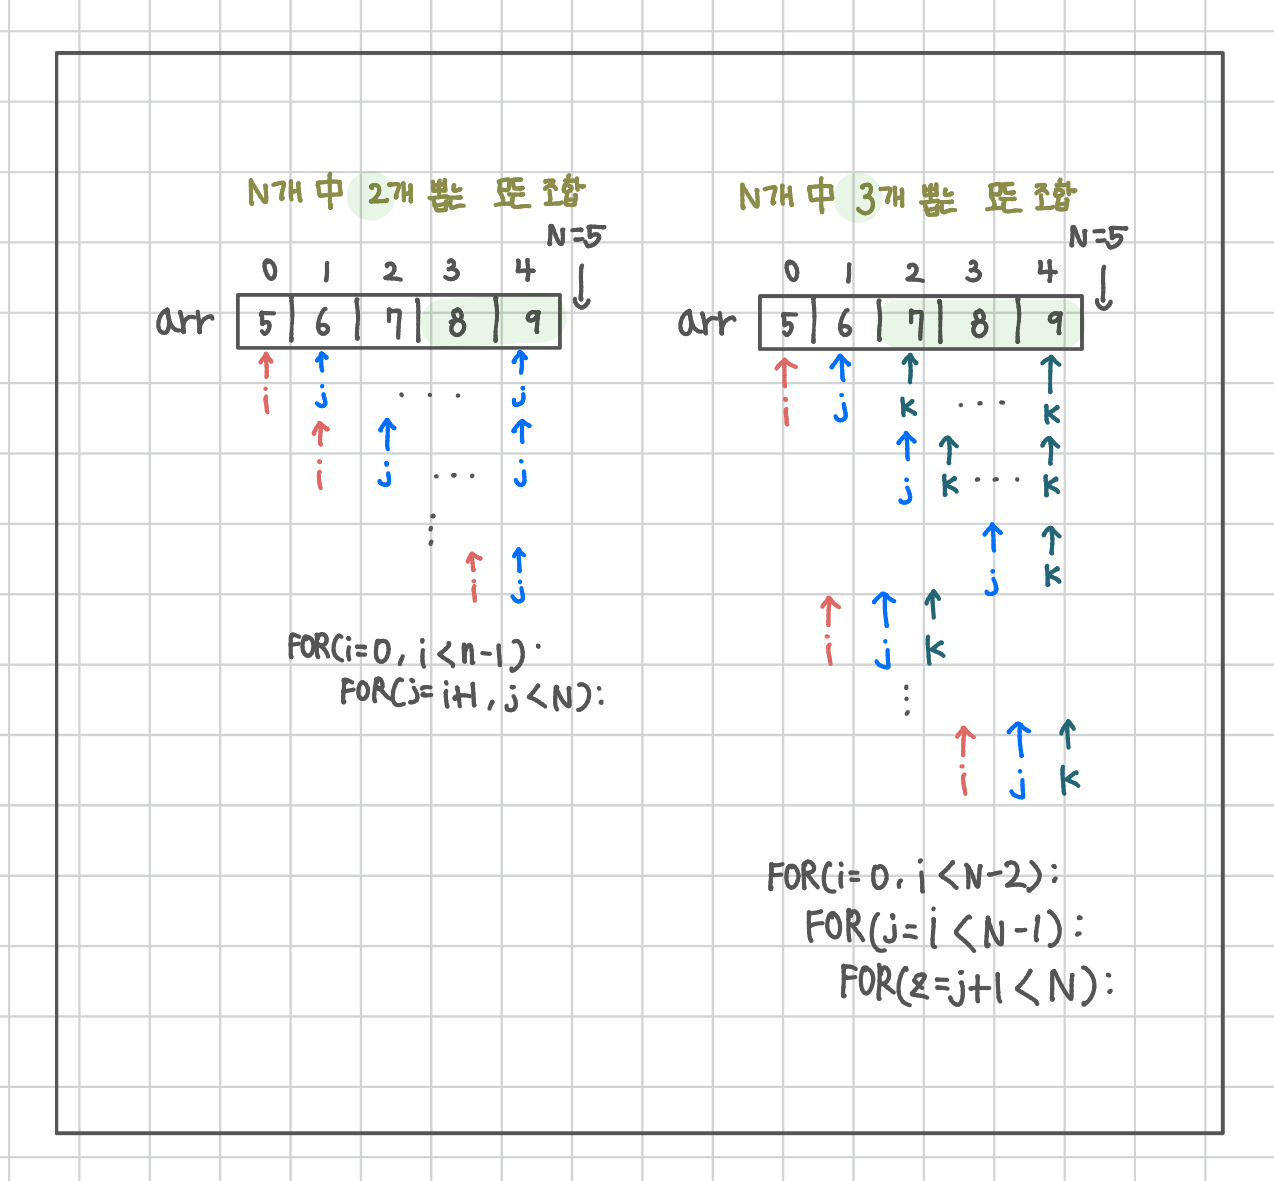 N개 中 2개 뽑는 모든 조합
N=5
0 1 2 3 4
arr 5 6 7 8 9
i j . . . j
i j ... j
⋮
i j
FOR(i=0, i<n-1):
FOR(j=i+1, j<N):
N개 中 3개 뽑는 모든 조합
N=5
0 1 2 3 4
arr 5 6 7 8 9
i j k ... k
j k ... k
j k
i j k
⋮
i j k
FOR(i=0, i<N-2):
FOR(j=i<N-1):
FOR(z=j+1<N):